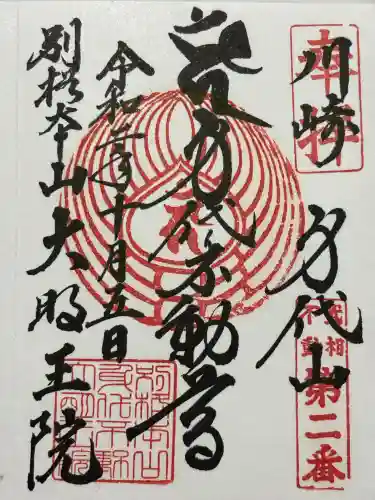 奉拝
川崎 身代山
武相不動
第二番
身代不動尊
令和二年十月五日
別格本山大明王院